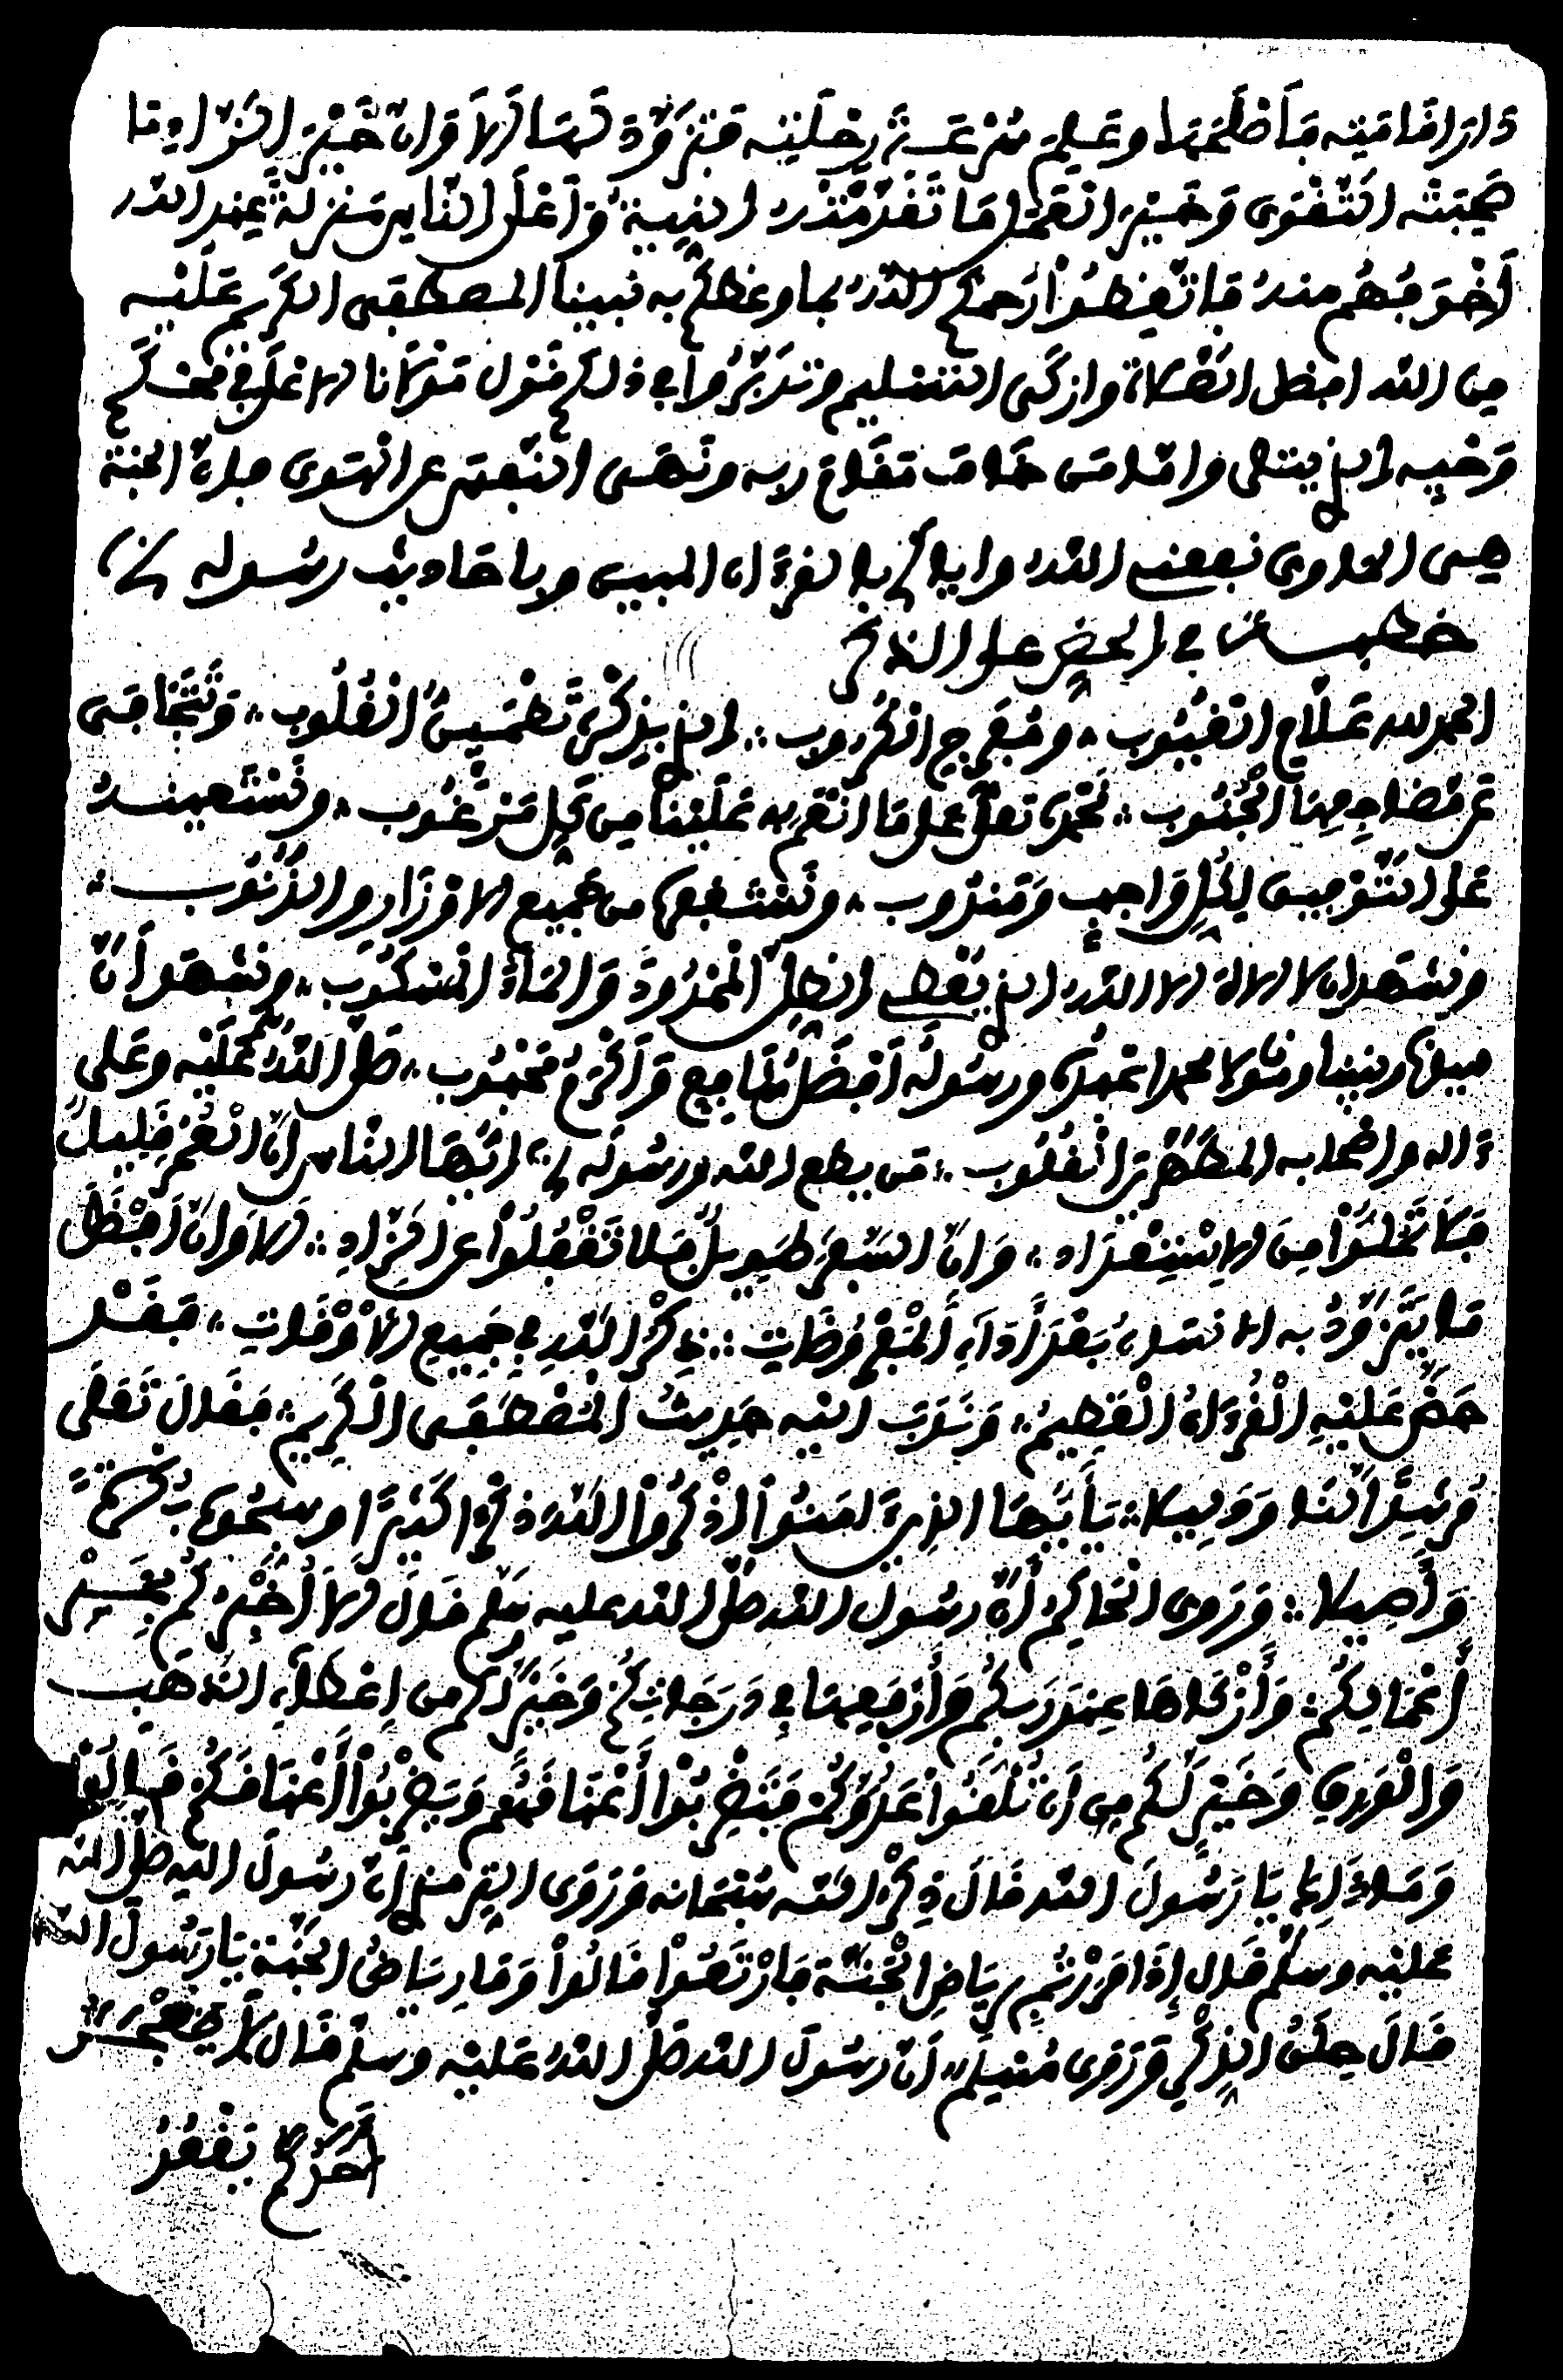 دار إقامته فأصلحها وعلم من عن رحلته فتزودها لها ألا وإن خير الزاد ما
صحبته التقوى وخير العمل ما تقدمته النية وأعلى الناس منزلة عند الله
أخوفهم منه فاتعظوا رحمكم الله بما وعظكم به نبينا المصطفى الكريم عليه
من الله أفضل الصلاة وأزكى التسليم وتدبروا في ذلكم قول مولانا الأعلى في محكم
وحيه الذي يتلى وأما من خاف مقام ربه ونهى النفس عن الهوى فإن الجنة
هي المأوى نفعني الله وإياكم بالقرءان المبين وبأحاديث رسوله
خطبة في الحض على الذكر
الحمد لله علام الغيوب ومفرج الكروب الذي بذكره تطمئن القلوب وتتجافى
عن مضاجعها الجنوب نحمده تعلى على ما أنعم به علينا من كل مرغوب ونستعينه
على التوفيق لكل واجب ومندوب ونستغفره من جميع الأوزار والذنوب
ونشهد أن لا إله إلا الله الذي يعطي الظل الممدود والماء المسكوب ونشهد أن
سيدنا ونبينا ومولانا محمدا عبده ورسوله أفضل شافع وأكرم محبوب صلى الله عليه وعلى
ءاله وأصحابه المطهرين القلوب من يطع الله ورسوله أيها الناس إن العمر قليل
فلا تخلوا من الاستعداد وإن السفر طويل فلا تغفلوا عن الزاد ألا وإن أفضل
ما يتزود به الإنسان بعد أداء المفروضات ذكر الله في جميع الأوقات فقد
حض عليه القرءان العظيم وندب إليه حديث المصطفى الكريم فقال تعلى
مرشدا لنا ودليلا يأيها الذين ءامنوا اذكروا الله ذكرا كثيرا وسبحوه بكرة
وأصيلا وروى الحاكم أن رسول الله صلى الله عليه وسلم قال ألا أخبركم بخير
أعمالكم وأزكاها عند ربكم وأرفعها في درجاتكم وخير لكم من إعطاء الذهب
والورق وخير لكم من أن تلقوا عدوكم فتضربوا أعناقهم ويضربوا أعناقكم قالوا
وما ذاك يا رسول الله قال ذكر الله سبحانه وروى الترمذي أن رسول الله صلى الله
عليه وسلم قال إذا مررتم برياض الجنة فارتعوا قالوا وما رياض الجنة يا رسول الله
قال حلق الذكر وروى مسلم أن رسول الله صلى الله عليه وسلم قال لا يقعدن
أحدكم يقعد